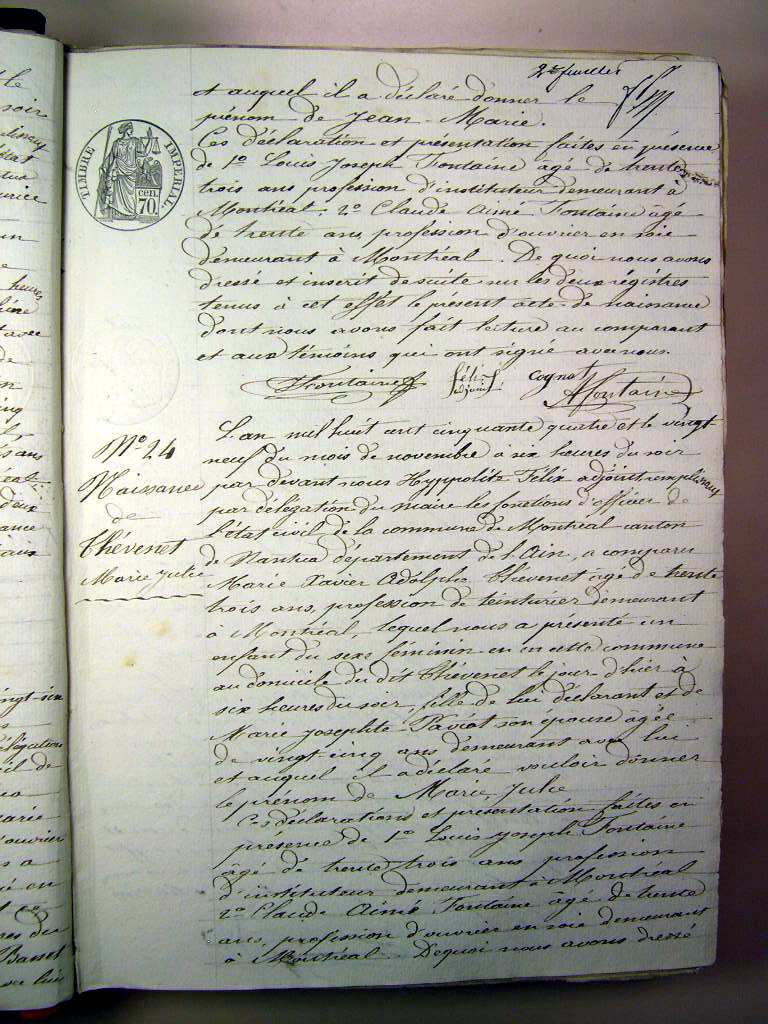 2e feuillet
TIMBRE IMPÉRIAL
70 cen.
et auquel il a déclaré donner le
prénom de Jean-Marie.
Ces déclaration et présentation faites en présence
de 1o Louis Joseph Fontaine âgé de trente
trois ans profession d'instituteur demeurant à
Montréal, 2o Claude Aimé Fontaine âgé
de trente ans, profession d'ouvrier en soie
demeurant à Montréal. De quoi nous avons
dressé et inscrit de suite sur les deux régistres
tenus à cet effet le présent acte de naissance
dont nous avons fait lecture au comparant
et aux témoins qui ont signé avec nous.
Fontaine Félix adjoint Cognat A fontaine
No 24
Naissance
de
Thévenet
Marie Julie
L'an mil huit cent cinquante quatre et le vingt
neuf du mois de novembre à six heures du soir
par devant nous Hyppolite Félix adjoint remplissant
par délégation du maire les fonctions d'officier de
l'état civil de la commune de Montréal canton
de Nantua département de l'Ain, a comparu
Marie Xavier Adolphe Thévenet âgé de trente
trois ans, profession de teinturier demeurant
à Montréal, lequel nous a présenté un
enfant du sexe féminin né en cette commune
au domicile du dit Thévenet le jour d'hier à
six heures du soir, fille de lui déclarant et de
Marie Josephte Paviot son épouse âgée
de vingt cinq ans demeurant avec lui
et auquel il a déclaré vouloir donner
le prénom de Marie Julie
Ces déclarations et présentation faites en
présence de 1o Louis Joseph Fontaine
âgé de trente trois ans profession
d'instituteur demeurant à Montréal
2o Claude Aimé Fontaine âgé de trente
ans, profession d'ouvrier en soie demeurant
à Montréal. De quoi nous avons dressé